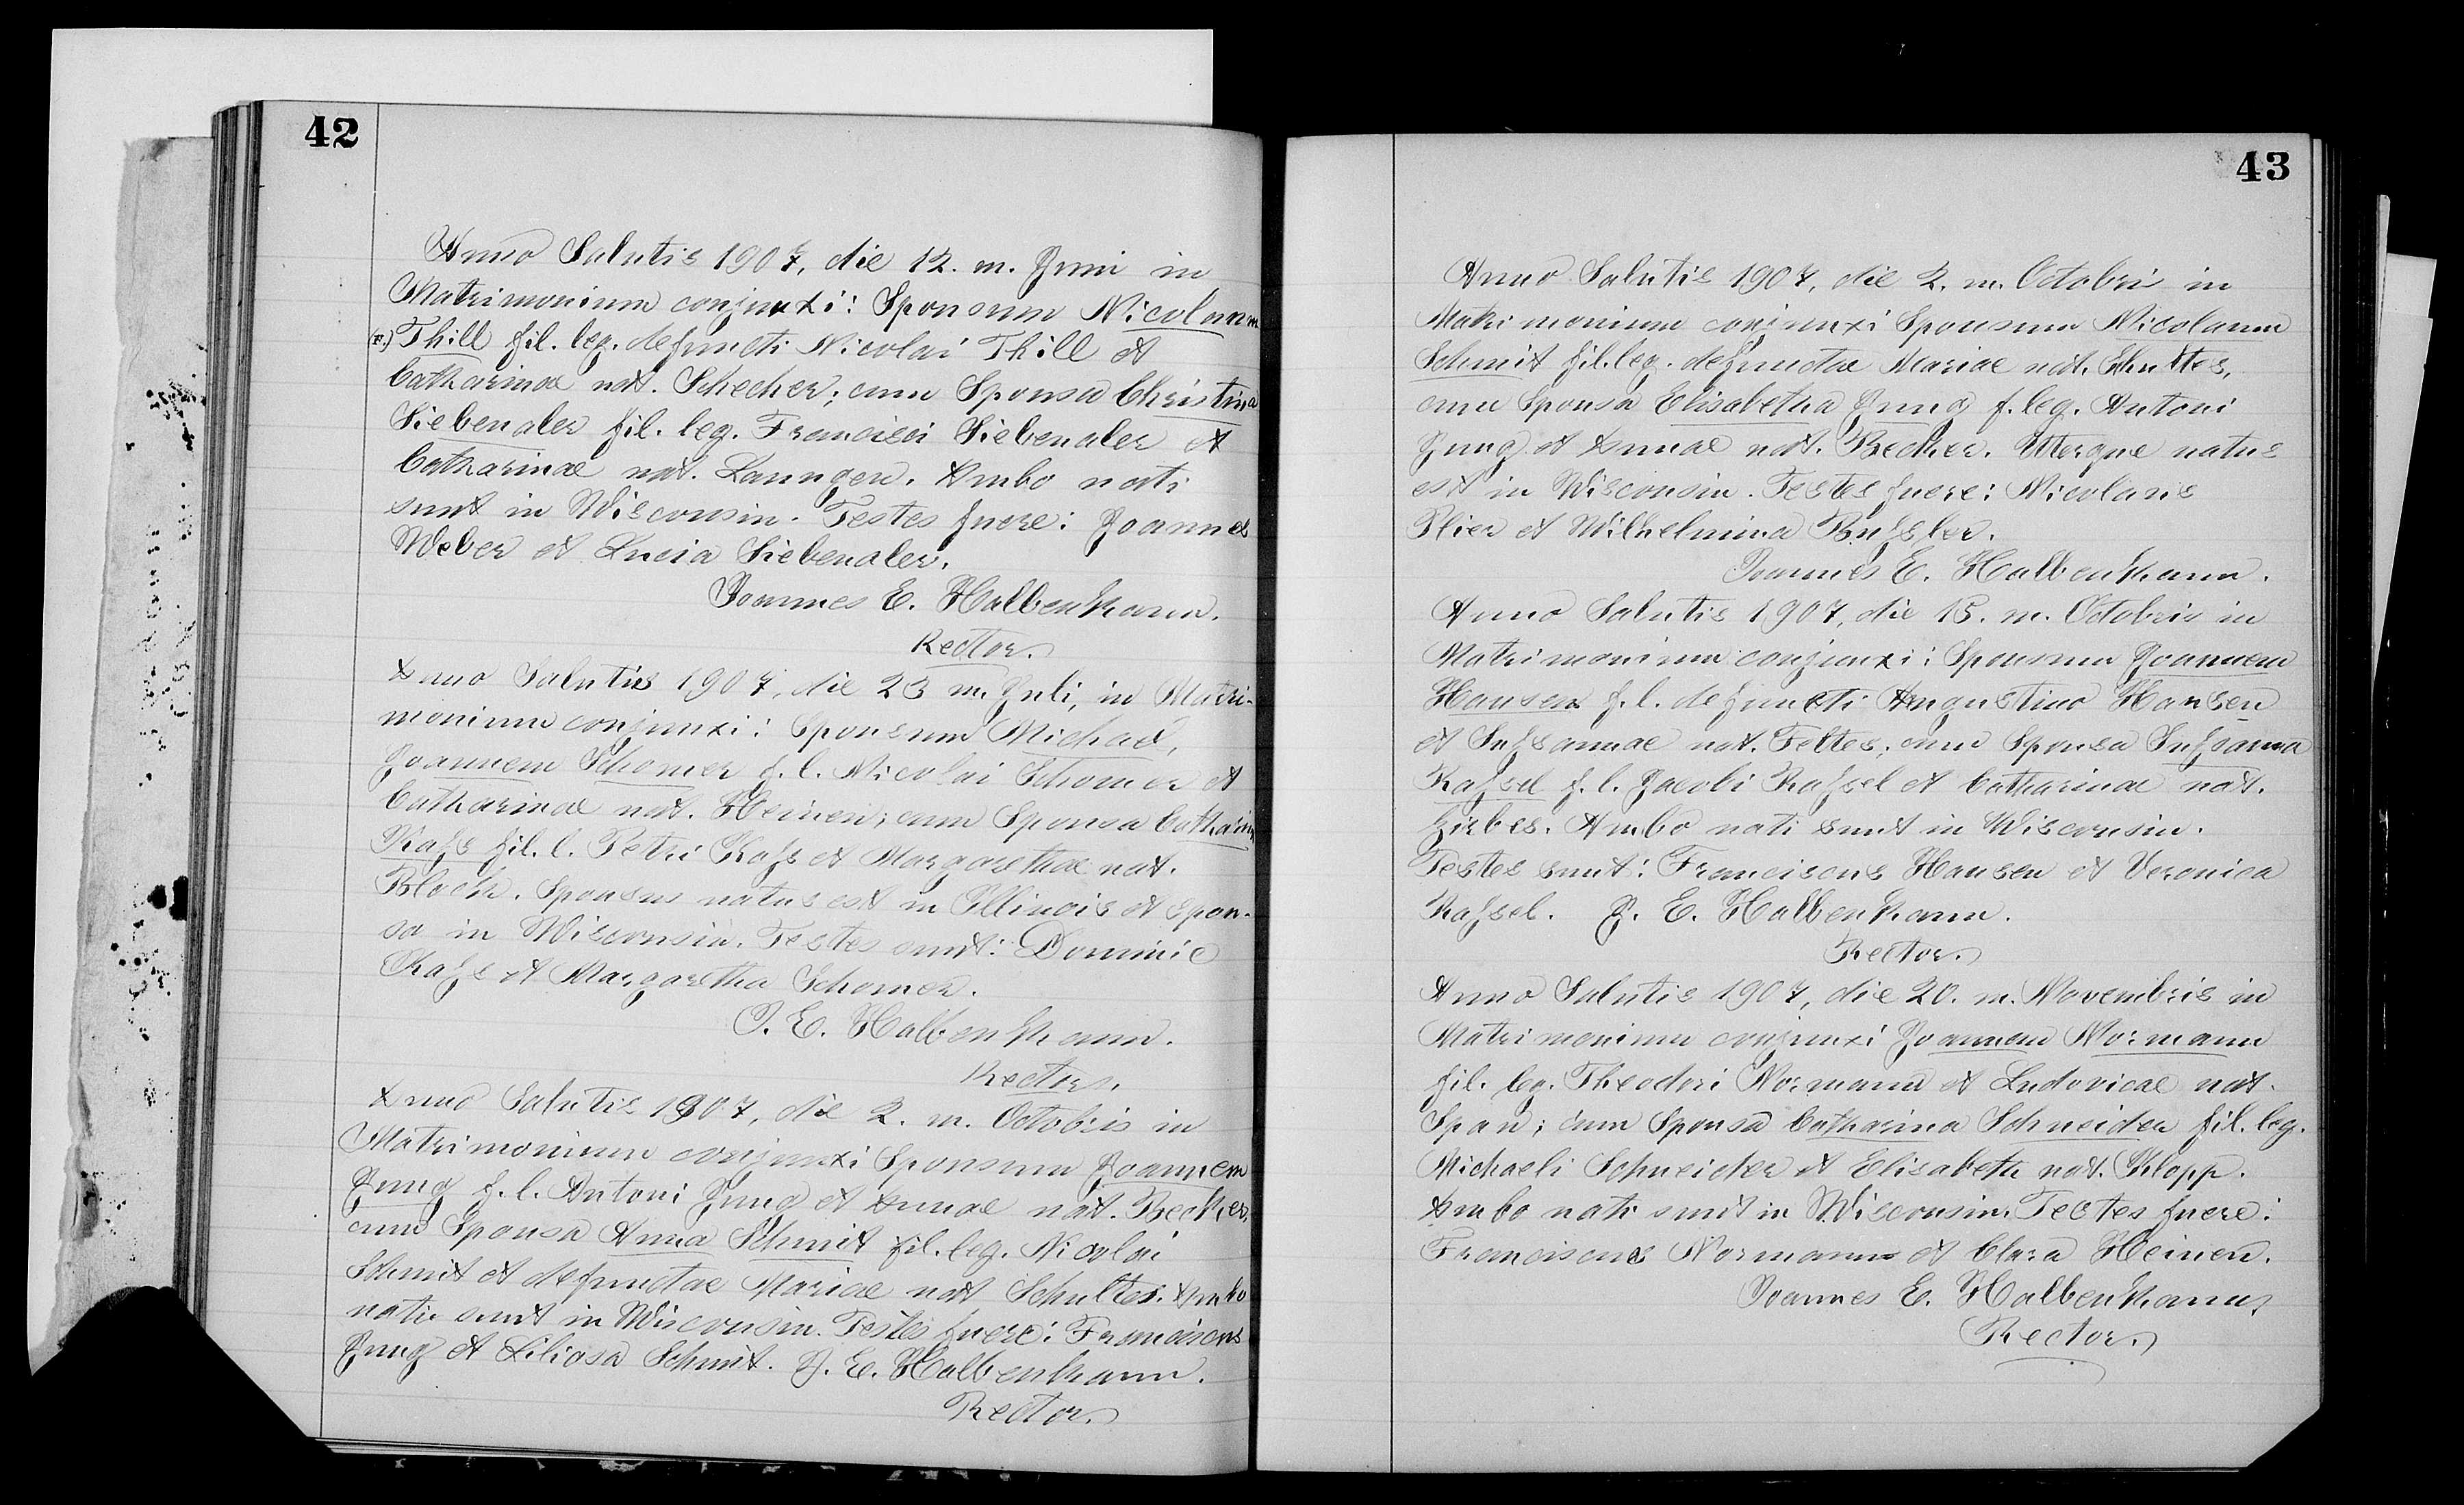 42
Anno Salutis 1907, die 12. m. Juni in
Matrimonium conjunxi: Sponsum Nicolaum
Thill fil. leg. defuncti Nicolai Thill et
Catharinae nat. Schecher; cum Sponsa Christina
Siebenaler fil. leg. Francisci Siebenaler et
Catharinae nat. Lanngen. Ambo nati
sunt in Wisconsin. Testes fuere: Joannes
Weber et Lucia Siebenaler.
Joannes E. Halbenkann.
Rector.
Anno Salutis 1907, die 23 m. Juli, in Matri-
monium conjunxi: Sponsum Michael,
Joannem Schomer f. l. Nicolai Schomer et
Catharinae nat. Heinen; cum Sponsa Catharina
Kahs fil. l. Petri Kahs et Margarethae nat.
Block. Sponsus natus est in Illinois et spon-
sa in Wisconsin. Testes sunt: Dominic
Kahs et Margaretha Schomer.
J. E. Halbenkann.
Rector.
Anno Salutis 1907, die 2. m. Octobris in
Matrimonium conjunxi Sponsum Joannem
Jung f. l. Antoni Jung et Annae nat. Becker,
cum Sponsa Anna Schmit fil. leg. Nicolai
Schmit et defunctae Mariae nat Schultes. Ambo
nati sunt in Wisconsin. Testes fuere: Franciscus
Jung et Liliosa Schmit. J. E. Halbenkann.
Rector.
43
Anno Salutis 1907, die 2. m. Octobris in
Matrimonium conjunxi Sponsum Nicolaum
Schmit fil. leg. defunctae Mariae nat.
cum Sponsa Elisabetha Jung f. leg. Antoni
Jung et Annae nat. Becker. Uterque natus
est in Wisconsin. Testes fuere: Nicolaus
Plier et Wilhelmina Buhsler.
Joannes E. Halbenkann.
Anno Salutis 1907, die 15. m. Octobris in
Matrimonium conjunxi: Sponsum Joannem
Hansen f. l. defuncti Augustino Hansen
et Suhsannae nat. Feltes; cum Sponsa Suhsanna
Kahsel f. l. Jacobi Kahsel et Catharinae nat.
Zirbes. Ambo nati sunt in Wisconsin.
Testes sunt: Franciscus Hansen et Veronica
Kahsel. J. E. Halbenkann.
Rector.
Anno Salutis 1907, die 20. m. Novembris in
Matrimonium conjunxi Joannem Normann
fil. leg. Theodori Normann et Ludovicae nat.
Span; cum Sponsa Catharina Schneider fil. leg.
Michaeli Schneider et Elisabeth nat. Klopp.
Ambo nati sunt in Wisconsin. Testes fuere:
Franciscus Normann et Clara Heinen.
Joannes E. Halbenkann,
Rector.